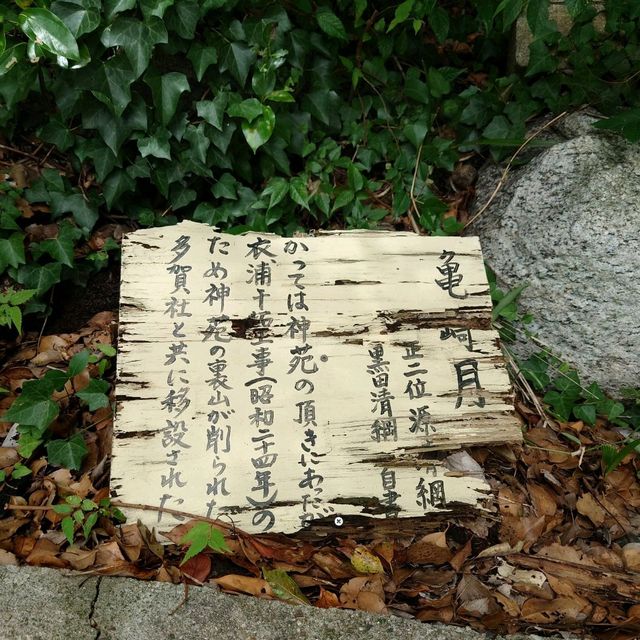 亀崎月
正二位 源 清綱
黒田清綱 自書
かつては神苑の頂きにあったが
衣浦干拓工事(昭和二十四年)の
ため神苑の裏山が削られた
多賀社と共に移設された